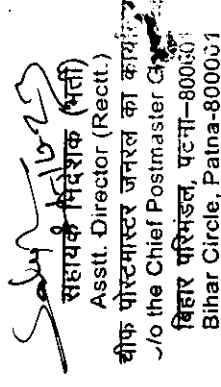 सहायक निदेशक (भर्ती)
Asstt. Director (Rectt.)
चीफ पोस्टमास्टर जनरल का
/o the Chief Postmaster
बिहार परिमंडल, पटना-800001
Bihar Circle, Patna-800001